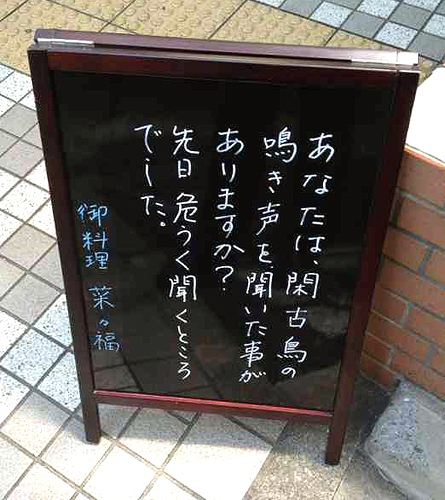 あなたは、閑古鳥の
鳴き声を聞いた事が
ありますか?
先日危うく聞くところ
でした。
御料理 菜々福